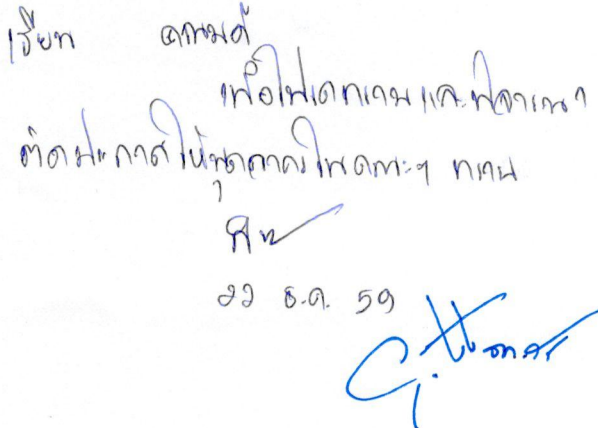 เรียน คณบดี
เพื่อโปรดทราบและพิจารณา
ติดประกาศให้บุคลากรในคณะฯ ทราบ
22 ธ.ค. 59